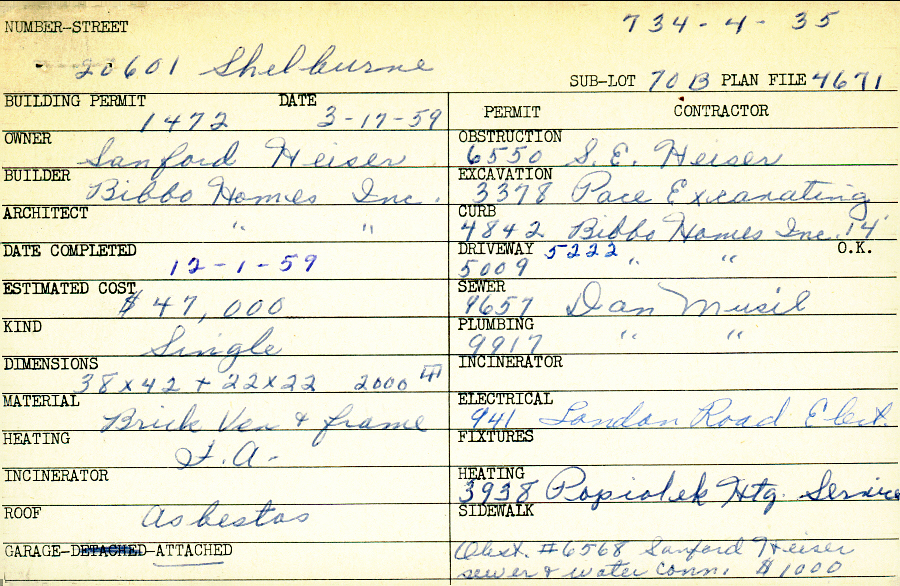 NUMBER-STREET 734-4-35
20601 Shelburne
SUB-LOT 70B PLAN FILE 4671
BUILDING PERMIT DATE
1472 3-17-59
OWNER
Sanford Heiser
BUILDER
Bibbo Homes Inc.
ARCHITECT
" "
DATE COMPLETED
12-1-59
ESTIMATED COST
$47,000
KIND
Single
DIMENSIONS
38x42 + 22x22 2000
MATERIAL
Brick Ven & frame
HEATING
F.A.
INCINERATOR
ROOF
Asbestos
GARAGE-DETACHED-ATTACHED
PERMIT CONTRACTOR
OBSTRUCTION
6550 S.E. Heiser
EXCAVATION
3378 Pace Excavating
CURB
4842 Bibbo Homes Inc. 14'
DRIVEWAY 5222 O.K.
5009 " "
SEWER
9657 Dan Musil
PLUMBING
9917 " "
INCINERATOR
ELECTRICAL
941 London Road Elect.
FIXTURES
HEATING
3938 Popiolek Htg. Service
SIDEWALK
Obst. #6568 Sanford Heiser
sewer & water conn. $1000